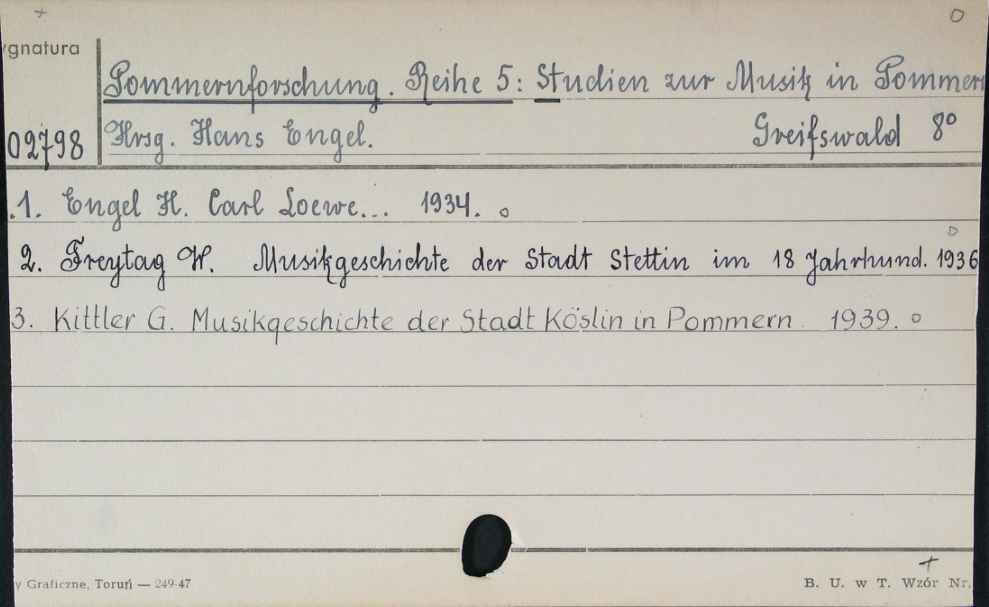 ygnatura
Pommernforschung. Reihe 5: Studien zur Musik in Pommern
02798 Hrsg. Hans Engel. Greifswald 8°
.1. Engel H. Carl Loewe... 1934. o
2. Freytag W. Musikgeschichte der Stadt Stettin im 18 Jahrhund. 1936
3. Kittler G. Musikgeschichte der Stadt Köslin in Pommern. 1939. o
y Graficzne, Toruń — 249-47
B. U. w T. Wzór Nr.